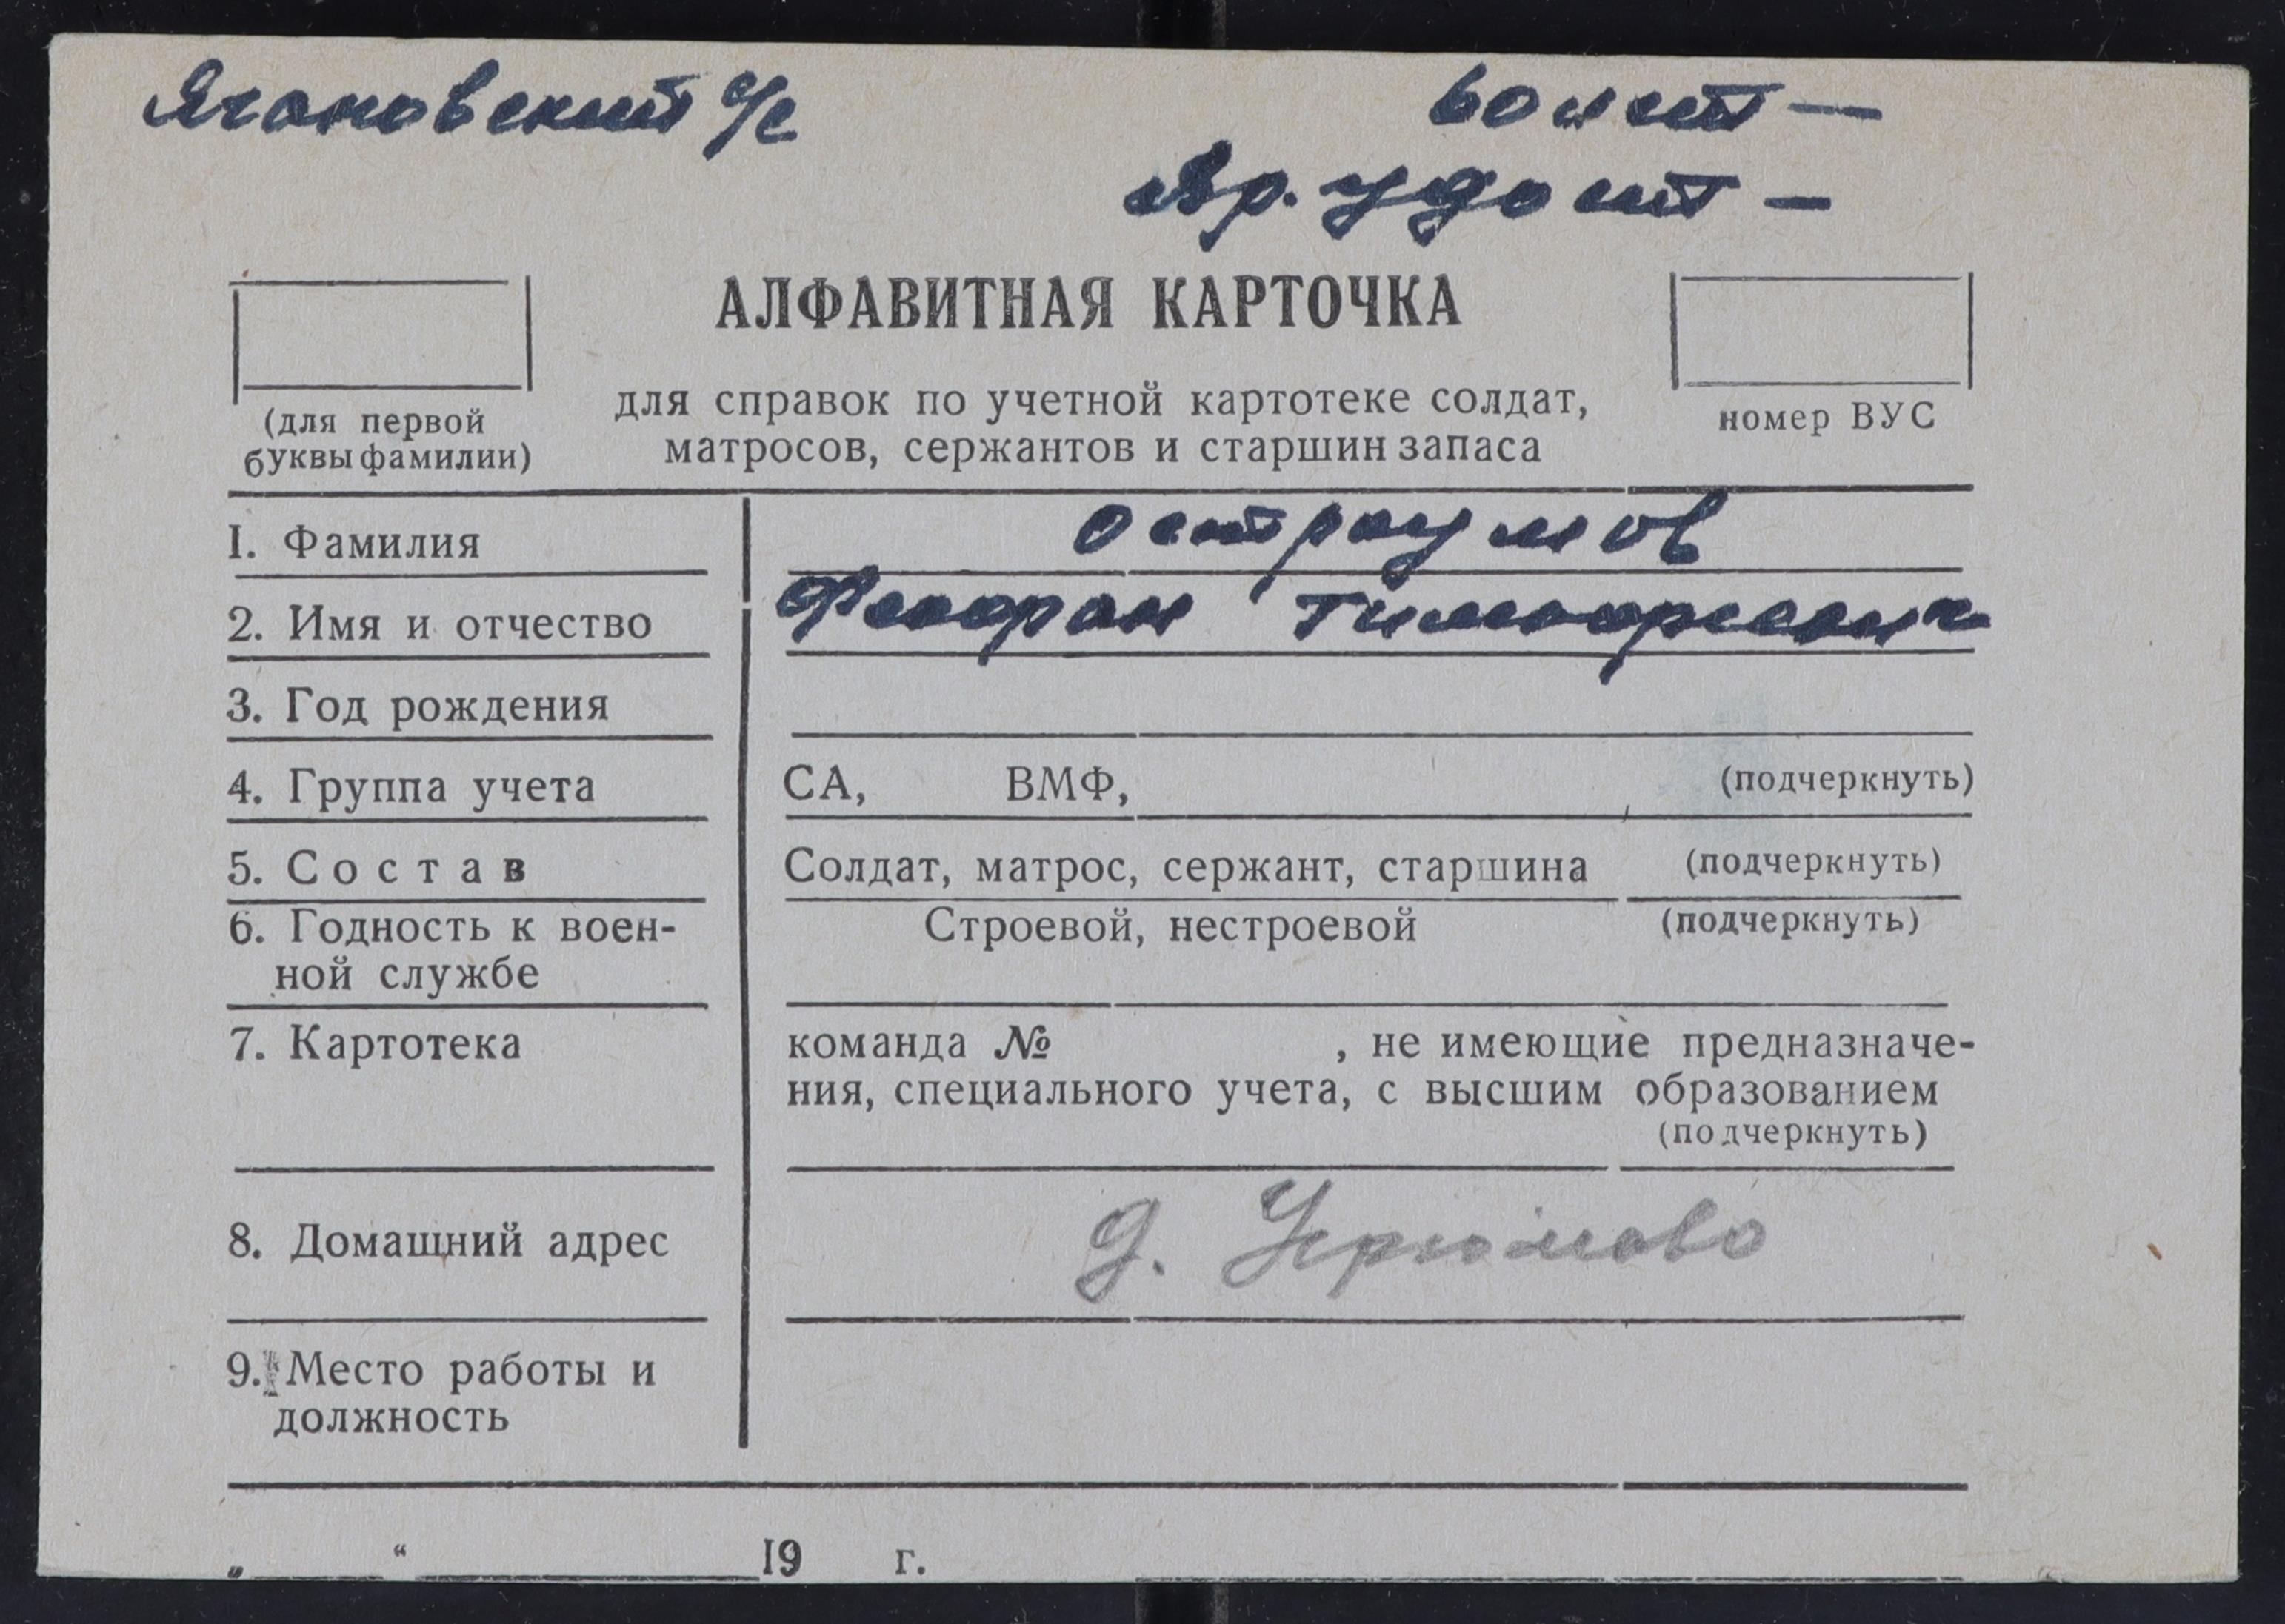 Ягановский с/с
60 лет —
Вр. удост —
АЛФАВИТНАЯ КАРТОЧКА
для справок по учетной картотеке солдат,
матросов, сержантов и старшин запаса
(для первой
буквы фамилии)
номер ВУС
1. Фамилия Остроумов
2. Имя и отчество
3. Год рождения
4. Группа учета СА, ВМФ, (подчеркнуть)
5. Состав Солдат, матрос, сержант, старшина (подчеркнуть)
6. Годность к воен- Строевой, нестроевой (подчеркнуть)
ной службе
7. Картотека команда № , не имеющие предназначе-
ния, специального учета, с высшим образованием
(подчеркнуть)
8. Домашний адрес д.
9. Место работы и
должность
„ “ 19 г.